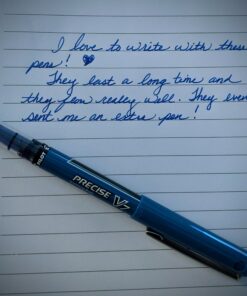 I love to write with these
pens! ♡
They last a long time and
they flow really well. They even
sent me an extra pen!
PILOT
PRECISE V7